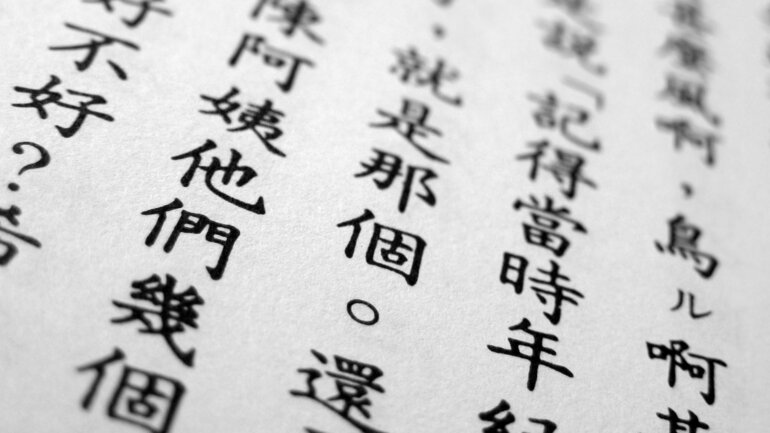 麼風啊，鳥ル啊
說「記得當時年紀
，就是那個。還
陳阿姨他們幾個
好不好？